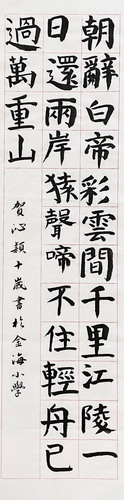 朝辭白帝彩雲間千里江陵一
日還兩岸猿聲啼不住輕舟已
過萬重山
賀沁穎十歲書於金海小學